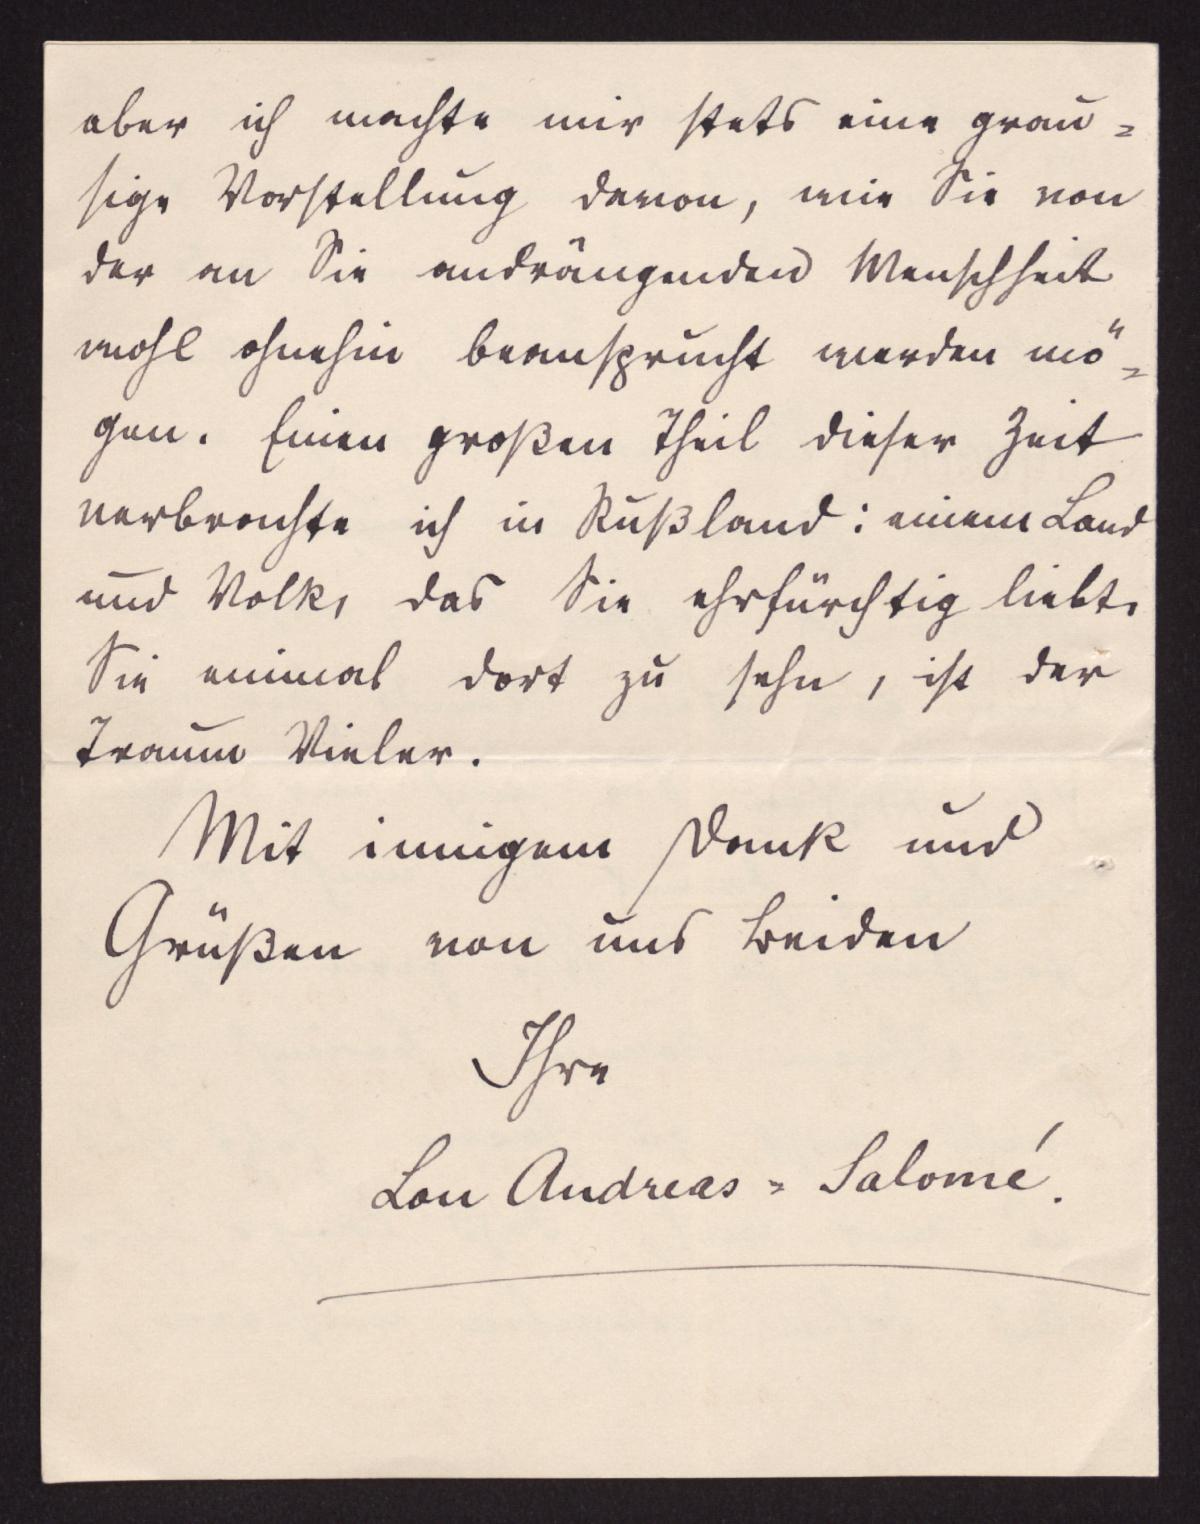 aber ich machte mir stets eine grau-
sige Vorstellung davon, wie Sie von
der an Sie andrängenden Menschheit
wohl ohnehin beansprucht werden mö-
gen. Einen großen Theil dieser Zeit
verbrachte ich in Rußland: einem Land
und Volk, das Sie ehrfürchtig liebt.
Sie einmal dort zu sehn, ist der
Traum Vieler.
Mit innigem Dank und
Grüßen von uns Beiden
Ihre
Lou Andreas-Salomé.